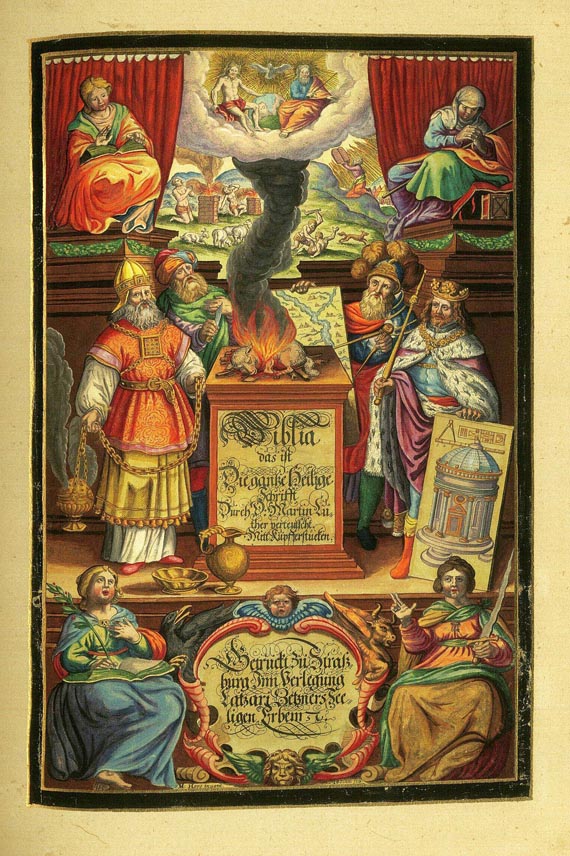 Biblia
das ist
Die gantze Heilige
Schrifft
Durch D. Martin Lu
ther verteuscht.
Mett Kupfferstucken.
Getruckt zu Straß
burg Inn Verlegung
Lazari Zetzners See
ligen Erben